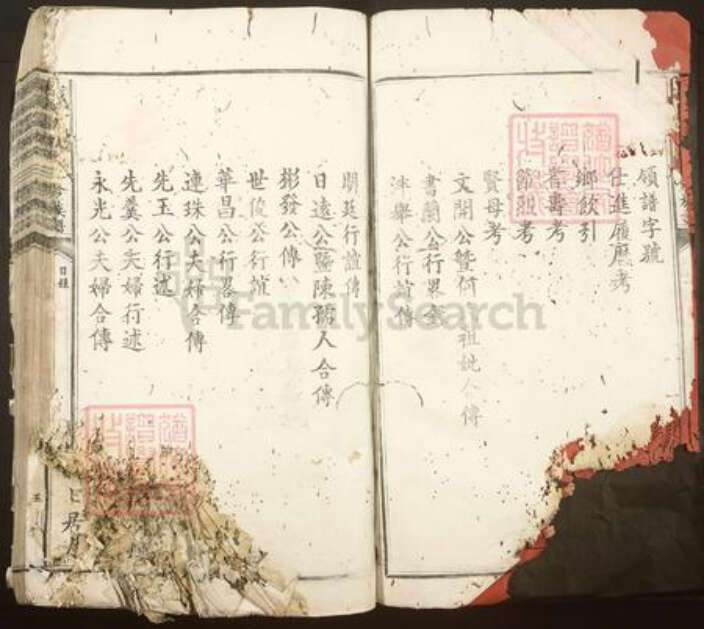 領譜字號
仕進履歷考
鄉飲引
耆壽考
節烈考
賢母考
文開公暨何 祖妣合傳
書蘭公行畧傳
泮舉公行誼傳
明廷行誼傳
日遠公暨陳孺人合傳
彬發公傳
世俊公行誼
華昌公行畧傳
連珠公夫婦合傳
先玉公行述
先羲公夫婦行述
永光公夫婦合傳
目錄
五
FamilySearch